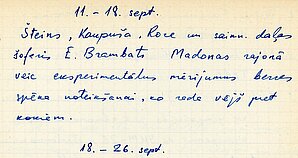 11. – 18. sept.
Šteins, Kaupuša, Roze un saimn. daļas
šoferis E. Brambats Madonas rajonā
veic eksperimentālus mērījumus berzes
spēka noteikšanai, ko rada vējš pret
kokiem.
18. – 26. sept.